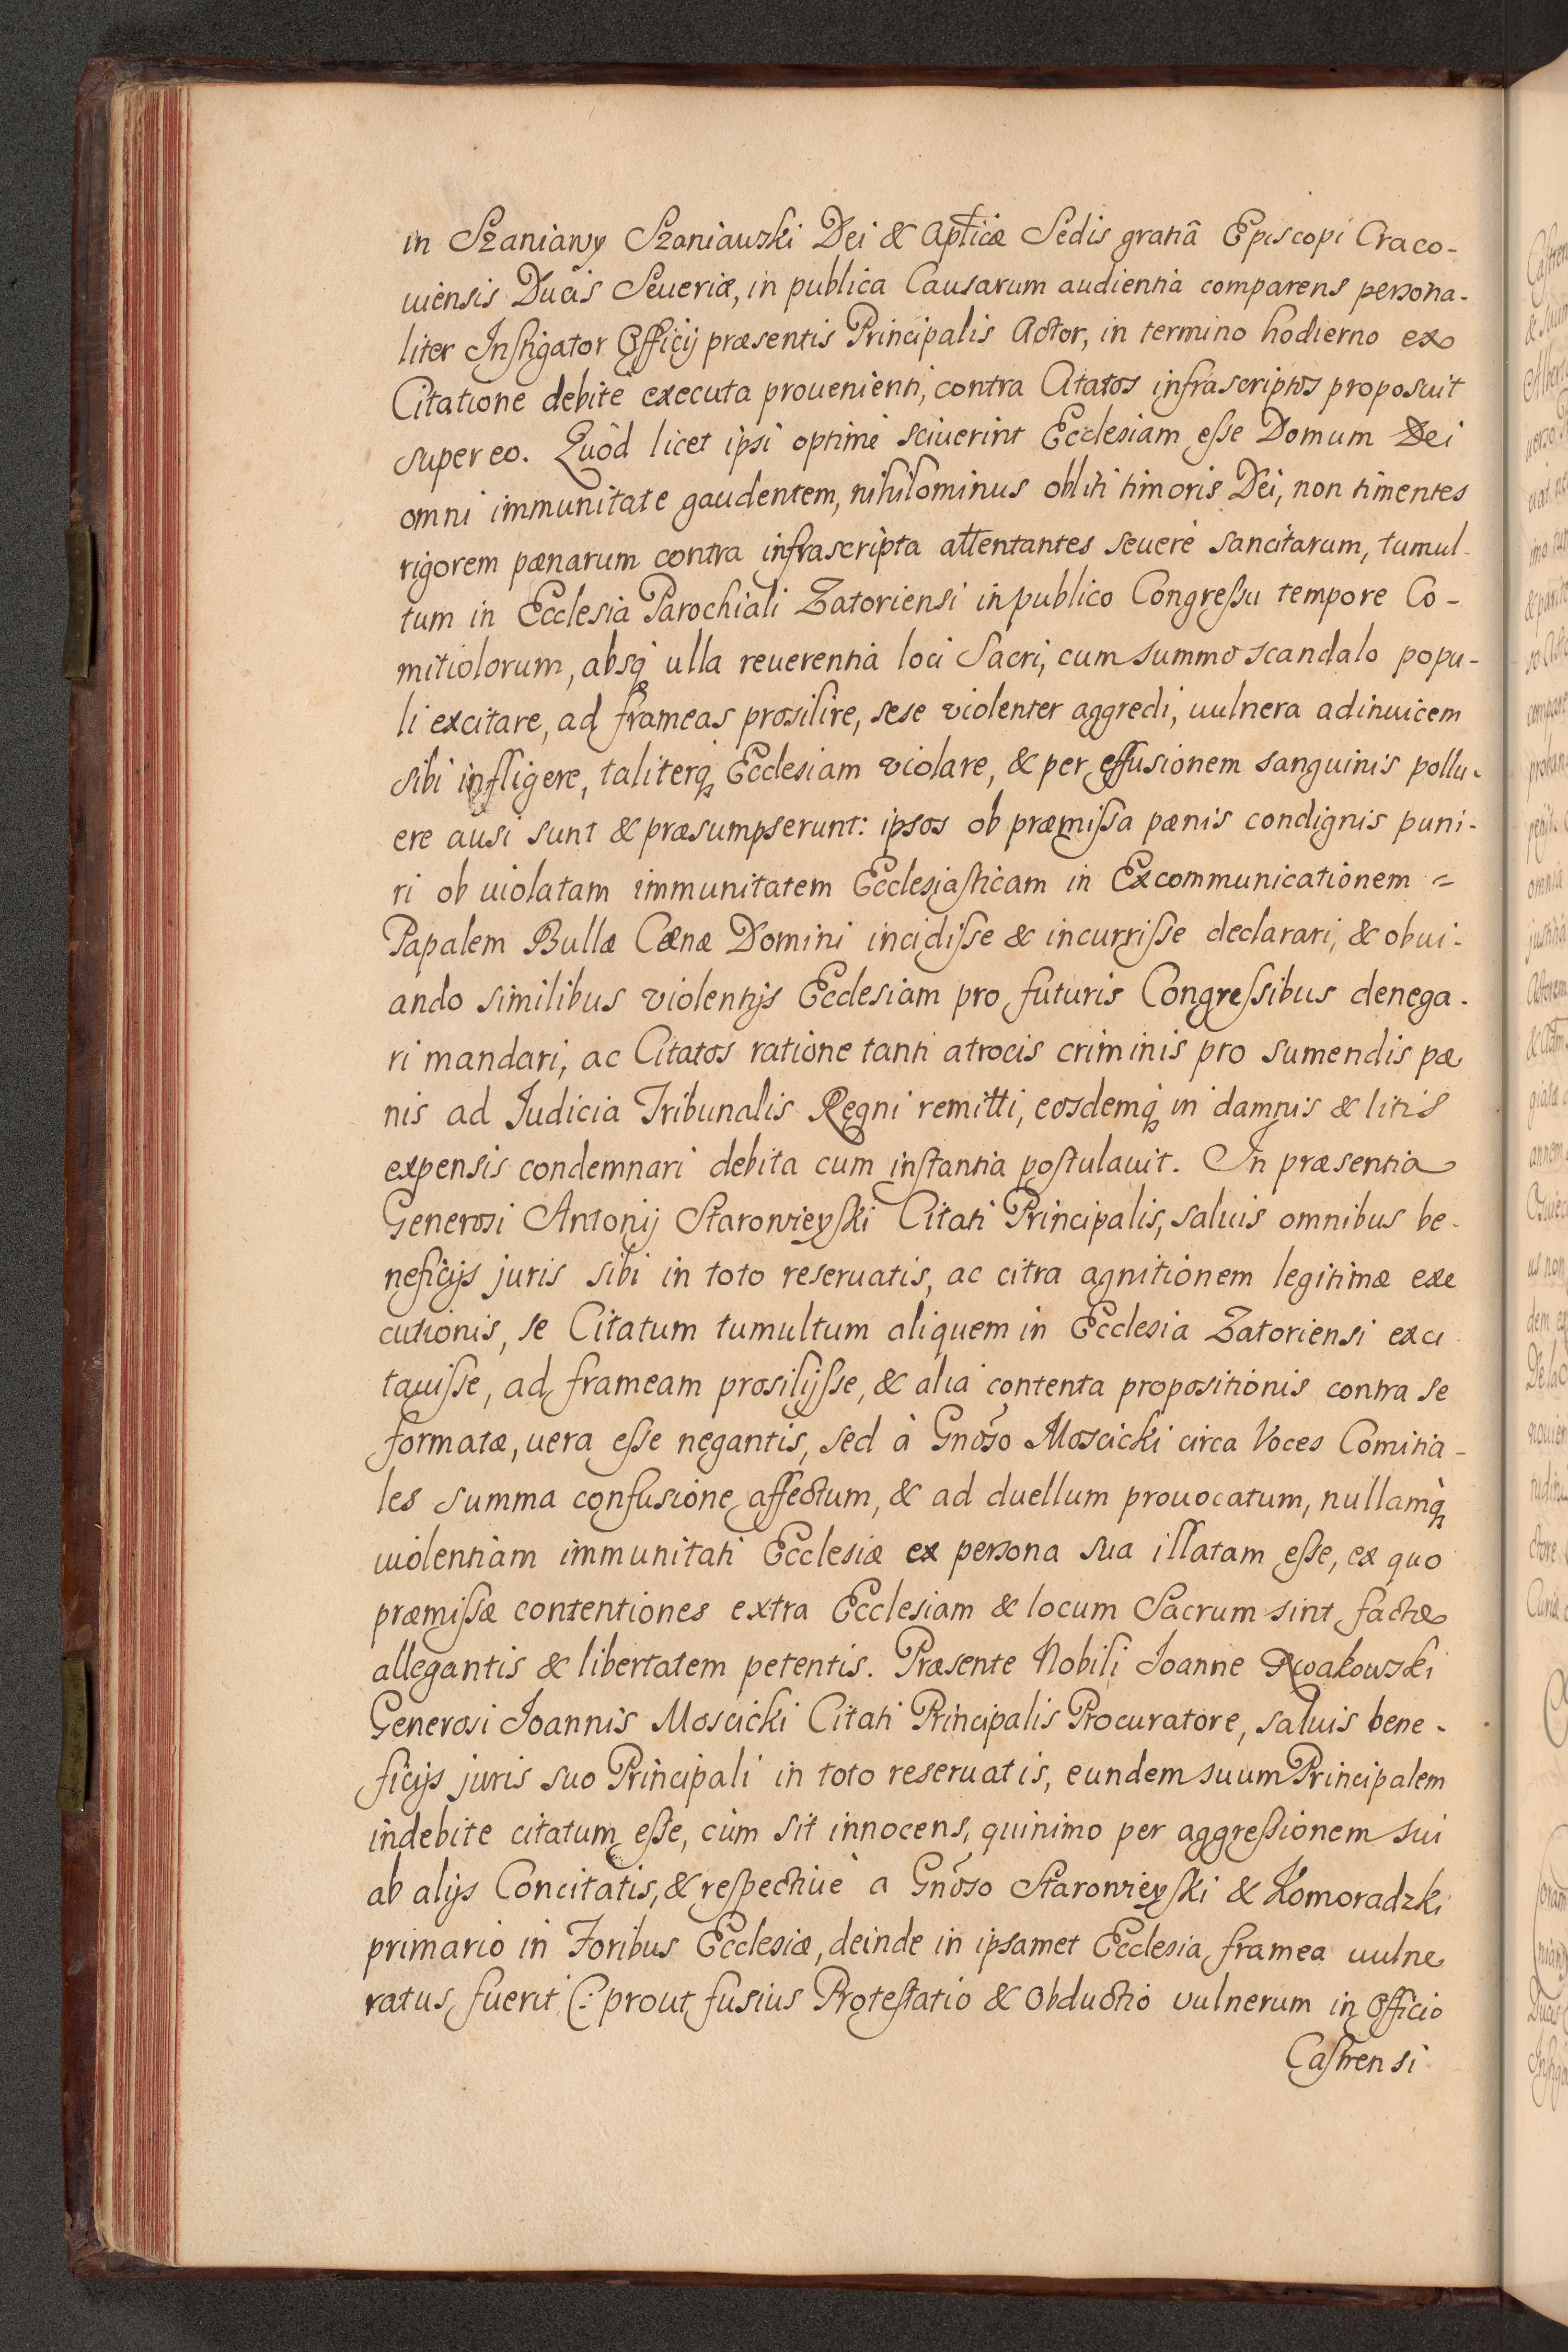 in Szaniawy Szaniawski Dei & Aptlicæ Sedis gratiâ Episcopi Craco-
uiensis Ducis Seueriæ, in publica Causarum audientia comparens persona-
liter Instigator Officij præsentis Principalis Actor, in termino hodierno ex
Citatione debitè executa prouenienti, contra Citatos infrascriptos proposuit
super eo. Quòd licet ipsi optimè sciuerint Ecclesiam esse Domum Dei
omni immunitate gaudentem, nihilominus obliti timoris Dei, non timentes
rigorem pænarum contra infrascripta attentantes seuerè sancitarum, tumul-
tum in Ecclesia Parochiali Zatoriensi in publico Congressu tempore Co-
mitiolorum, absq; ulla reuerentia loci Sacri, cum summo scandalo popu-
li excitare, ad frameas prosilire, sese violenter aggredi, uulnera adinuicem
sibi infligere, taliterq; Ecclesiam violare, & per effusionem sanguinis pollu-
ere ausi sunt & præsumpserunt: ipsos ob præmissa pænis condignis puni-
ri ob uiolatam immunitatem Ecclesiasticam in Excommunicationem =
Papalem Bullæ Cænæ Domini incidisse & incurrisse declarari, & obui-
ando similibus violentijs Ecclesiam pro futuris Congressibus denega-
ri mandari, ac Citatos ratione tanti atrocis criminis pro sumendis pæ
nis ad Judicia Tribunalis Regni remitti, eosdemq; in damnis & litis
expensis condemnari debita cum instantia postulauit. In præsentia
Generosi Antonij Starowieyski Citati Principalis, saluis omnibus be-
neficijs juris sibi in toto reseruatis, ac citra agnitionem legitimæ exe
cutionis, se Citatum tumultum aliquem in Ecclesia Zatoriensi exci
tauisse, ad frameam prosilijsse, & alia contenta propositionis contra se
formatæ, uera esse negantis, sed à Gnõso Moscicki circa Voces Comitia-
les summa confusione affectum, & ad duellum prouocatum, nullamq;
uiolentiam immunitati Ecclesiæ ex persona sua illatam esse, ex quo
præmissæ contentiones extra Ecclesiam & locum Sacrum sint factæ
allegantis & libertatem petentis. Præsente Nobili Joanne Kwakowski
Generosi Joannis Moscicki Citati Principalis Procuratore, saluis bene-
ficijs juris suo Principali in toto reseruatis, eundem suum Principalem
indebite citatum esse, cùm sit innocens, quinimo per aggressionem sui
ab alijs Concitatis, & respectiuè a Gnõso Starowieyski & Komoradzki
primario in Foribus Ecclesiæ, deinde in ipsamet Ecclesia framea uulne
ratus fuerit (: prout fusius Protestatio & Obductio vulnerum in Officio
Castrensi